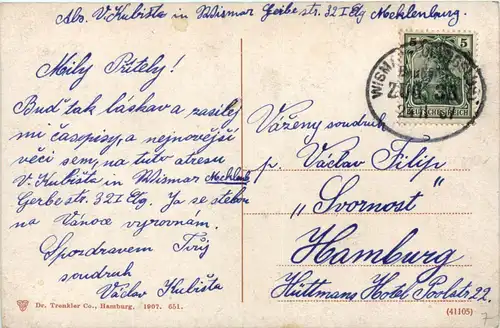 Abs. V. Kubišta in Wismar Gerbe str. 32 I Etg Mecklenburg.
5 5
DEUTSCHES REICH
Milý Příteli!
Buď tak láskav a zasílej
mi časopisy, a nejnovější
věci sem, na tuto atresu
V. Kubišta in Wismar Mecklenb
Gerbe str. 32 I Etg. Ja se s tebou
na Vánoce vyrovnám.
S pozdravem Tvůj
soudruh
Václav Kubišta
Vážený soudruh
p. Václav Filip
„Svornost"
Hamburg
Hüttmans Hotel Poolstr. 22.
Dr. Trenkler Co., Hamburg. 1907. 651.
(41105)
7